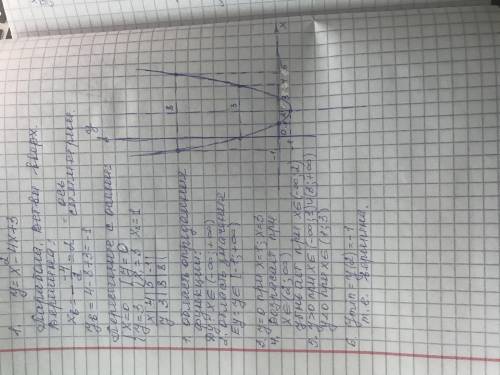 1. y = x² - 4x + 3
Парабола, ветви вверх.
Вершина:
xв = -(-4)/2 = 2 - ось симметрии.
yв = 4 - 8 + 3 = -1
Пересечение с осями:
{x=0 {y=0
{y=3, {x=3 x=1
x 4 5 -1
y 3 8 8
1. область определения
функции:
Dy: x∈(-∞; +∞)
2. область значения
Ey: y∈[-1; ∞)
3. y=0 при x=1; x=3
4. возрастает при
x∈(2; ∞)
убывает при x∈(-∞; 2)
5. y>0 при x∈(-∞; 1)∪(3; +∞)
y<0 при x∈(1; 3)
6. y min = y(2) = -1
т. к. вершина.
y
8
3
x